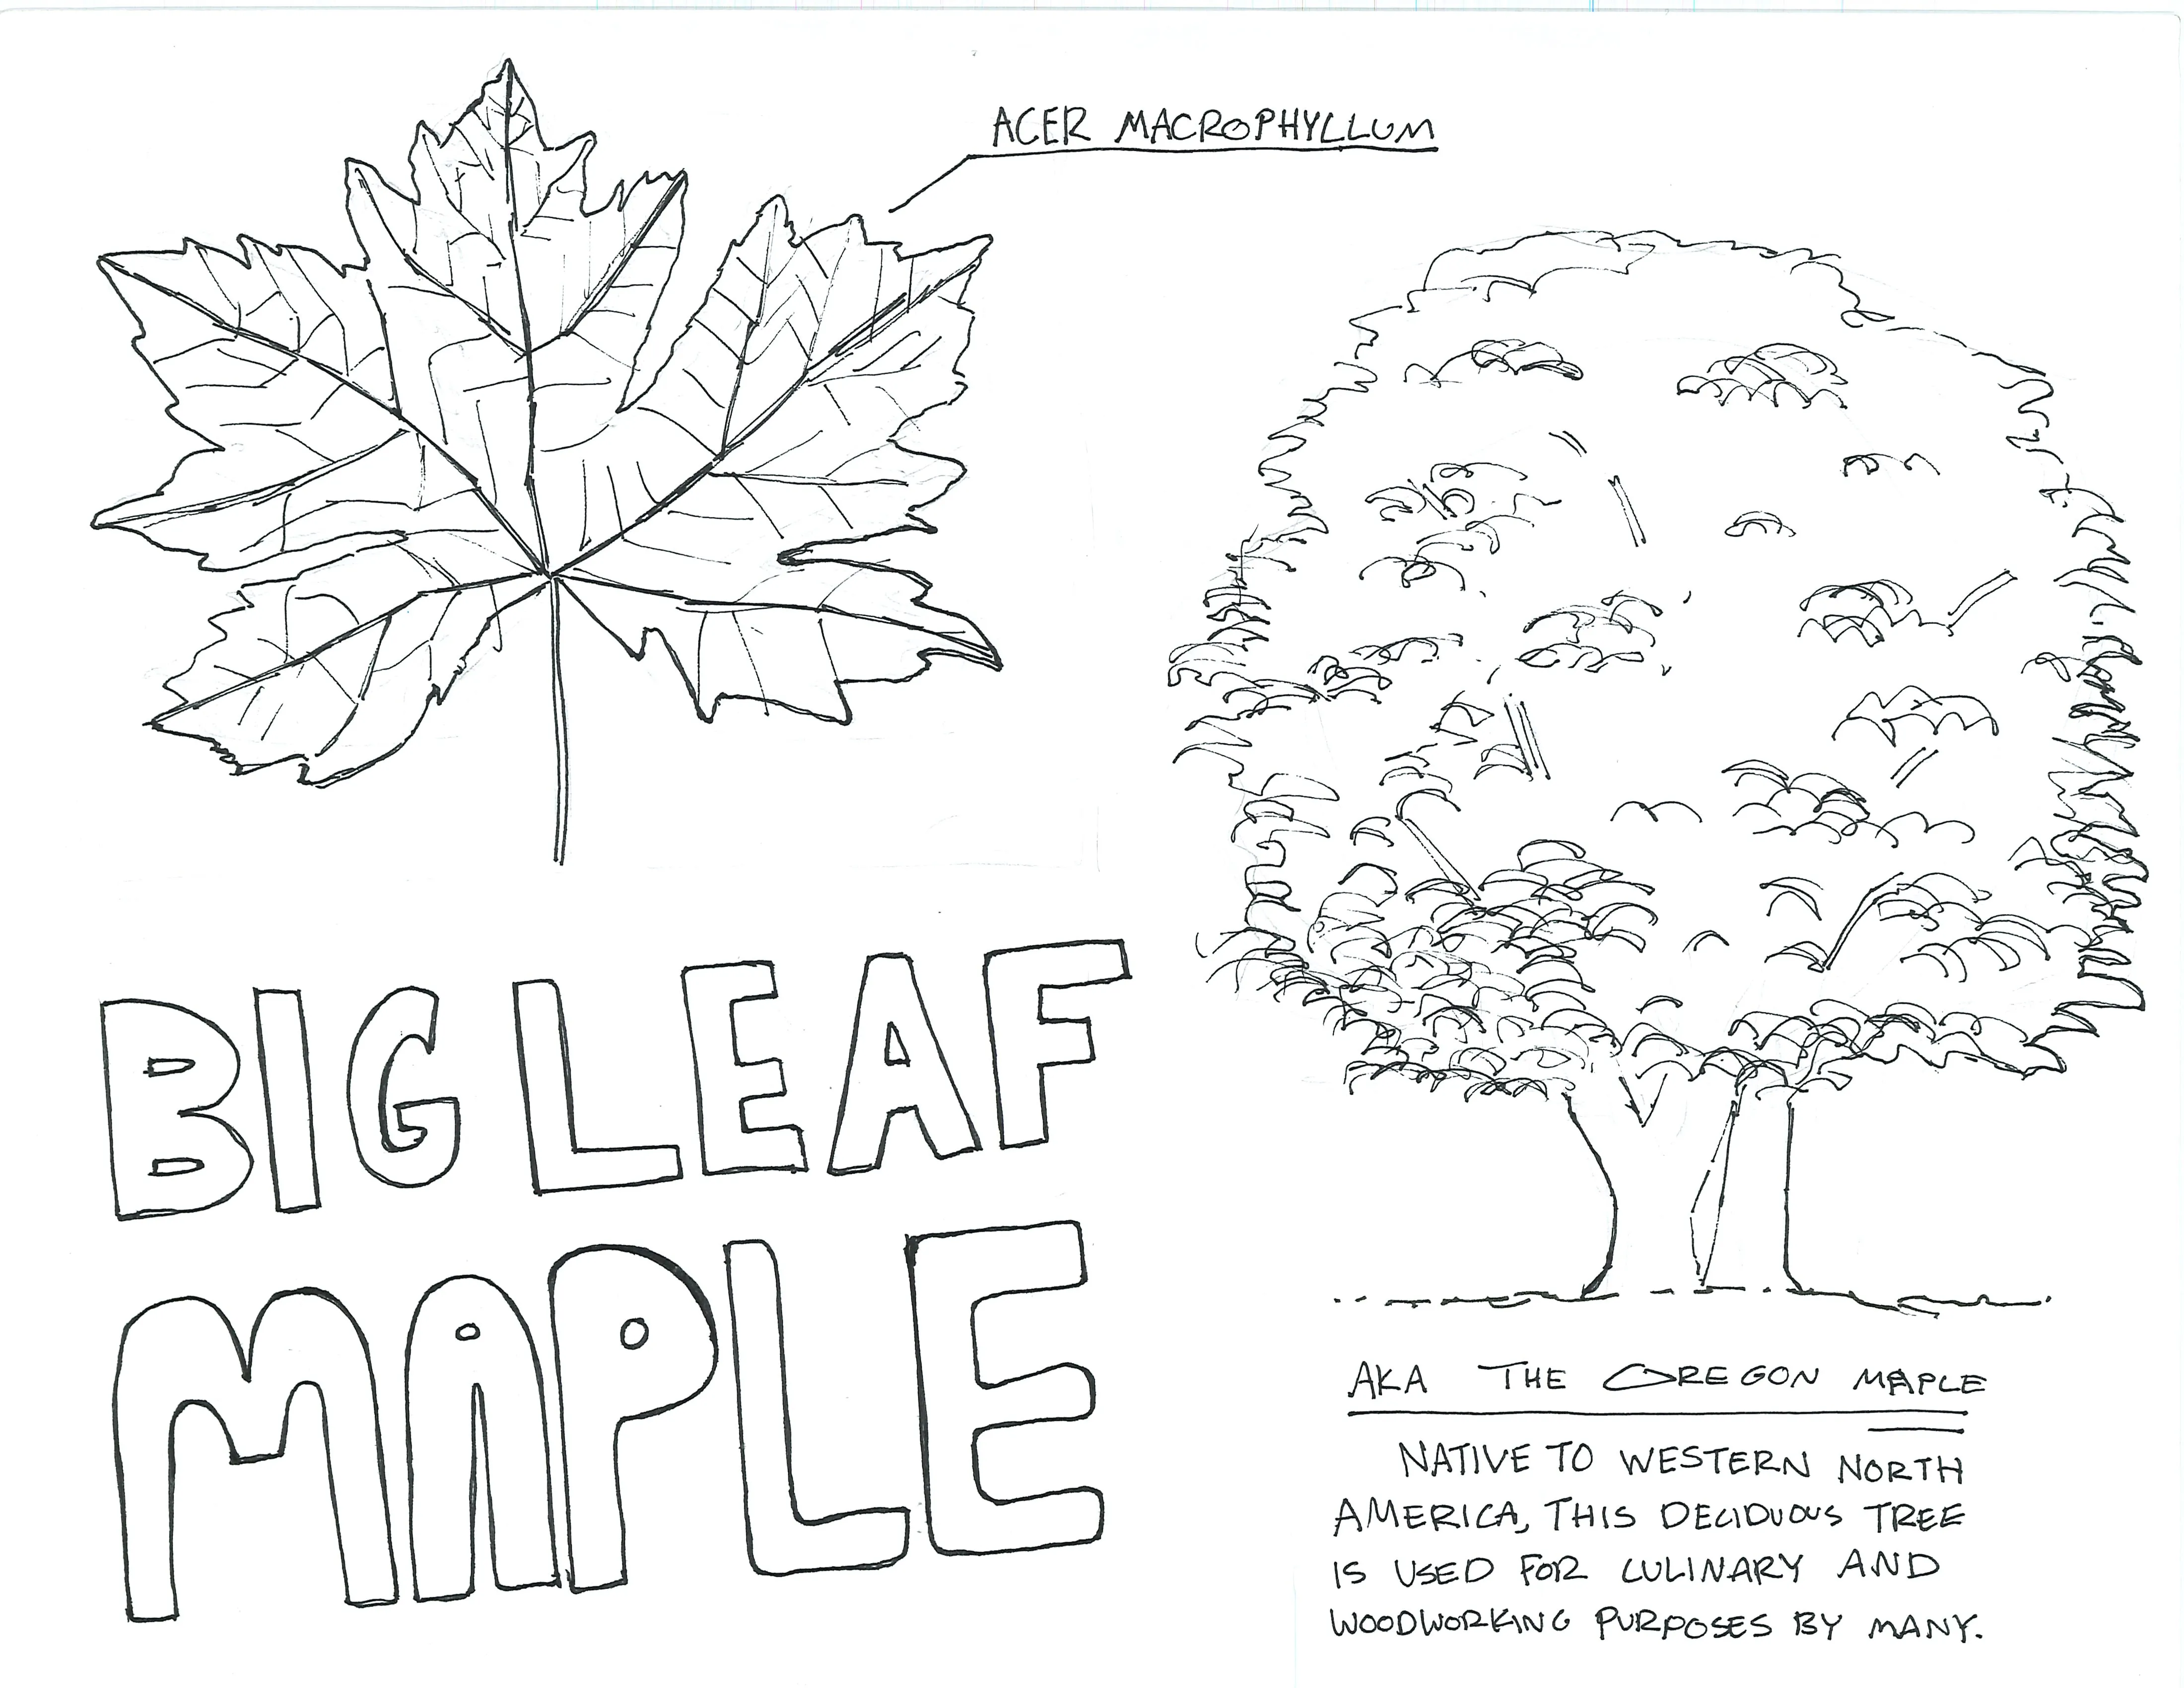 ACER MACROPHYLLUM
BIG LEAF
MAPLE
AKA THE OREGON MAPLE
NATIVE TO WESTERN NORTH
AMERICA, THIS DECIDUOUS TREE
IS USED FOR CULINARY AND
WOODWORKING PURPOSES BY MANY.